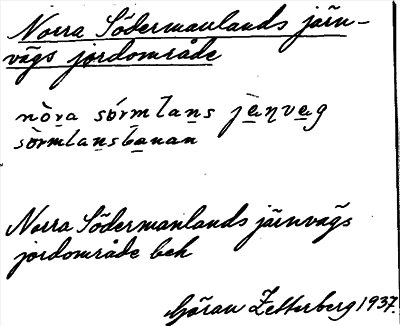 Norra Södermanlands järn-
vägs jordområde
nòra sörmlans jæ̀ṇvæg
sörmlansbanan
Norra Södermanlands järnvägs
jordområde beh
Göran Zetterberg 1937.